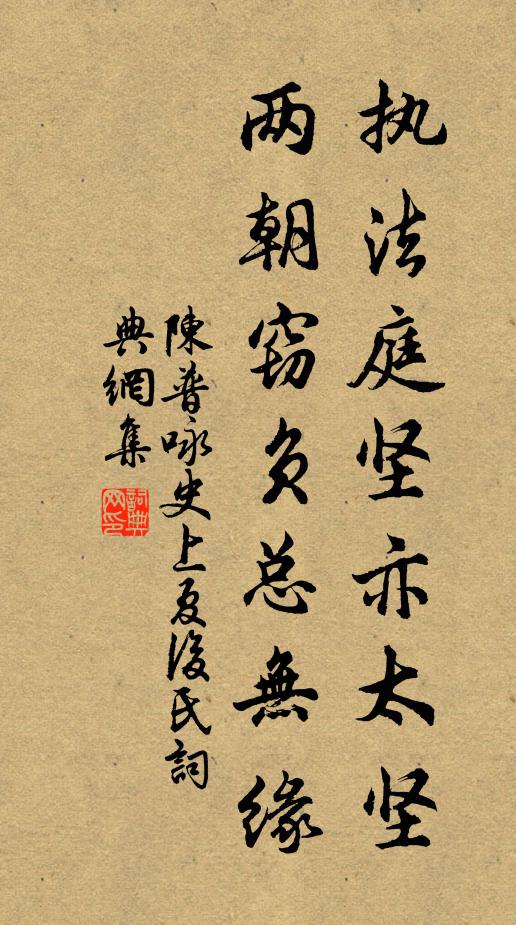 执法庭坚亦太坚
两朝窃负总無缘
陳普咏史上夏後氏詞
典網集
詞典
网印